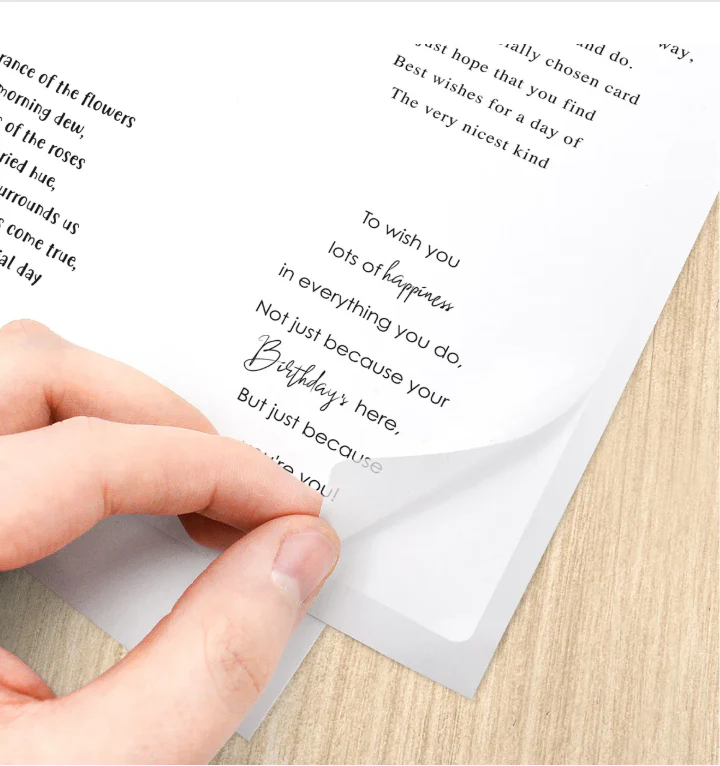 rance of the flowers
morning dew,
of the roses
ried hue,
urrounds us
come true,
ial day
way,
and do.
ially chosen card
just hope that you find
Best wishes for a day of
The very nicest kind
To wish you
lots of happiness
in everything you do,
Not just because your
Birthday's here,
But just because
you're you!